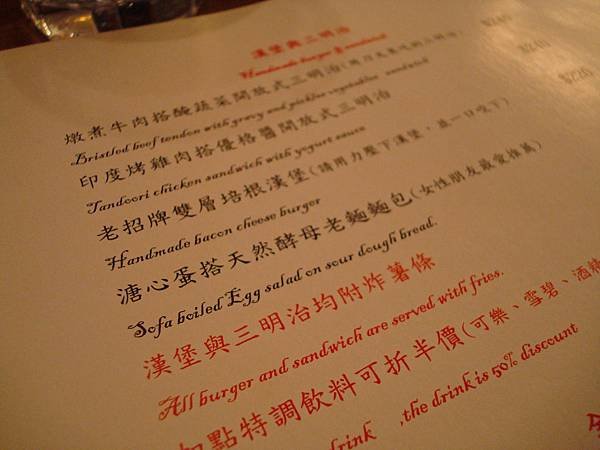 漢堡與三明治
Handmade burger & sandwich
燉煮牛肉搭醃蔬菜開放式三明治(用刀叉 $240
Bristled beef tendon with gravy and pickles vegetables sandwich
印度烤雞肉搭優格醬開放式三明治 $240
Tandoori chicken sandwich with yogurt sauce
老招牌雙層培根漢堡(請用力壓下漢堡,並一口咬下) $220
Handmade bacon cheese burger
溏心蛋搭天然酵母老麵麵包(女性朋友最愛推薦)
Sofa boiled Egg salad on sour dough bread.
漢堡與三明治均附炸薯條
All burger and sandwich are served with fries.
加點特調飲料可折半價(可樂、雪碧、酒精
drink ,the drink is 50% discount